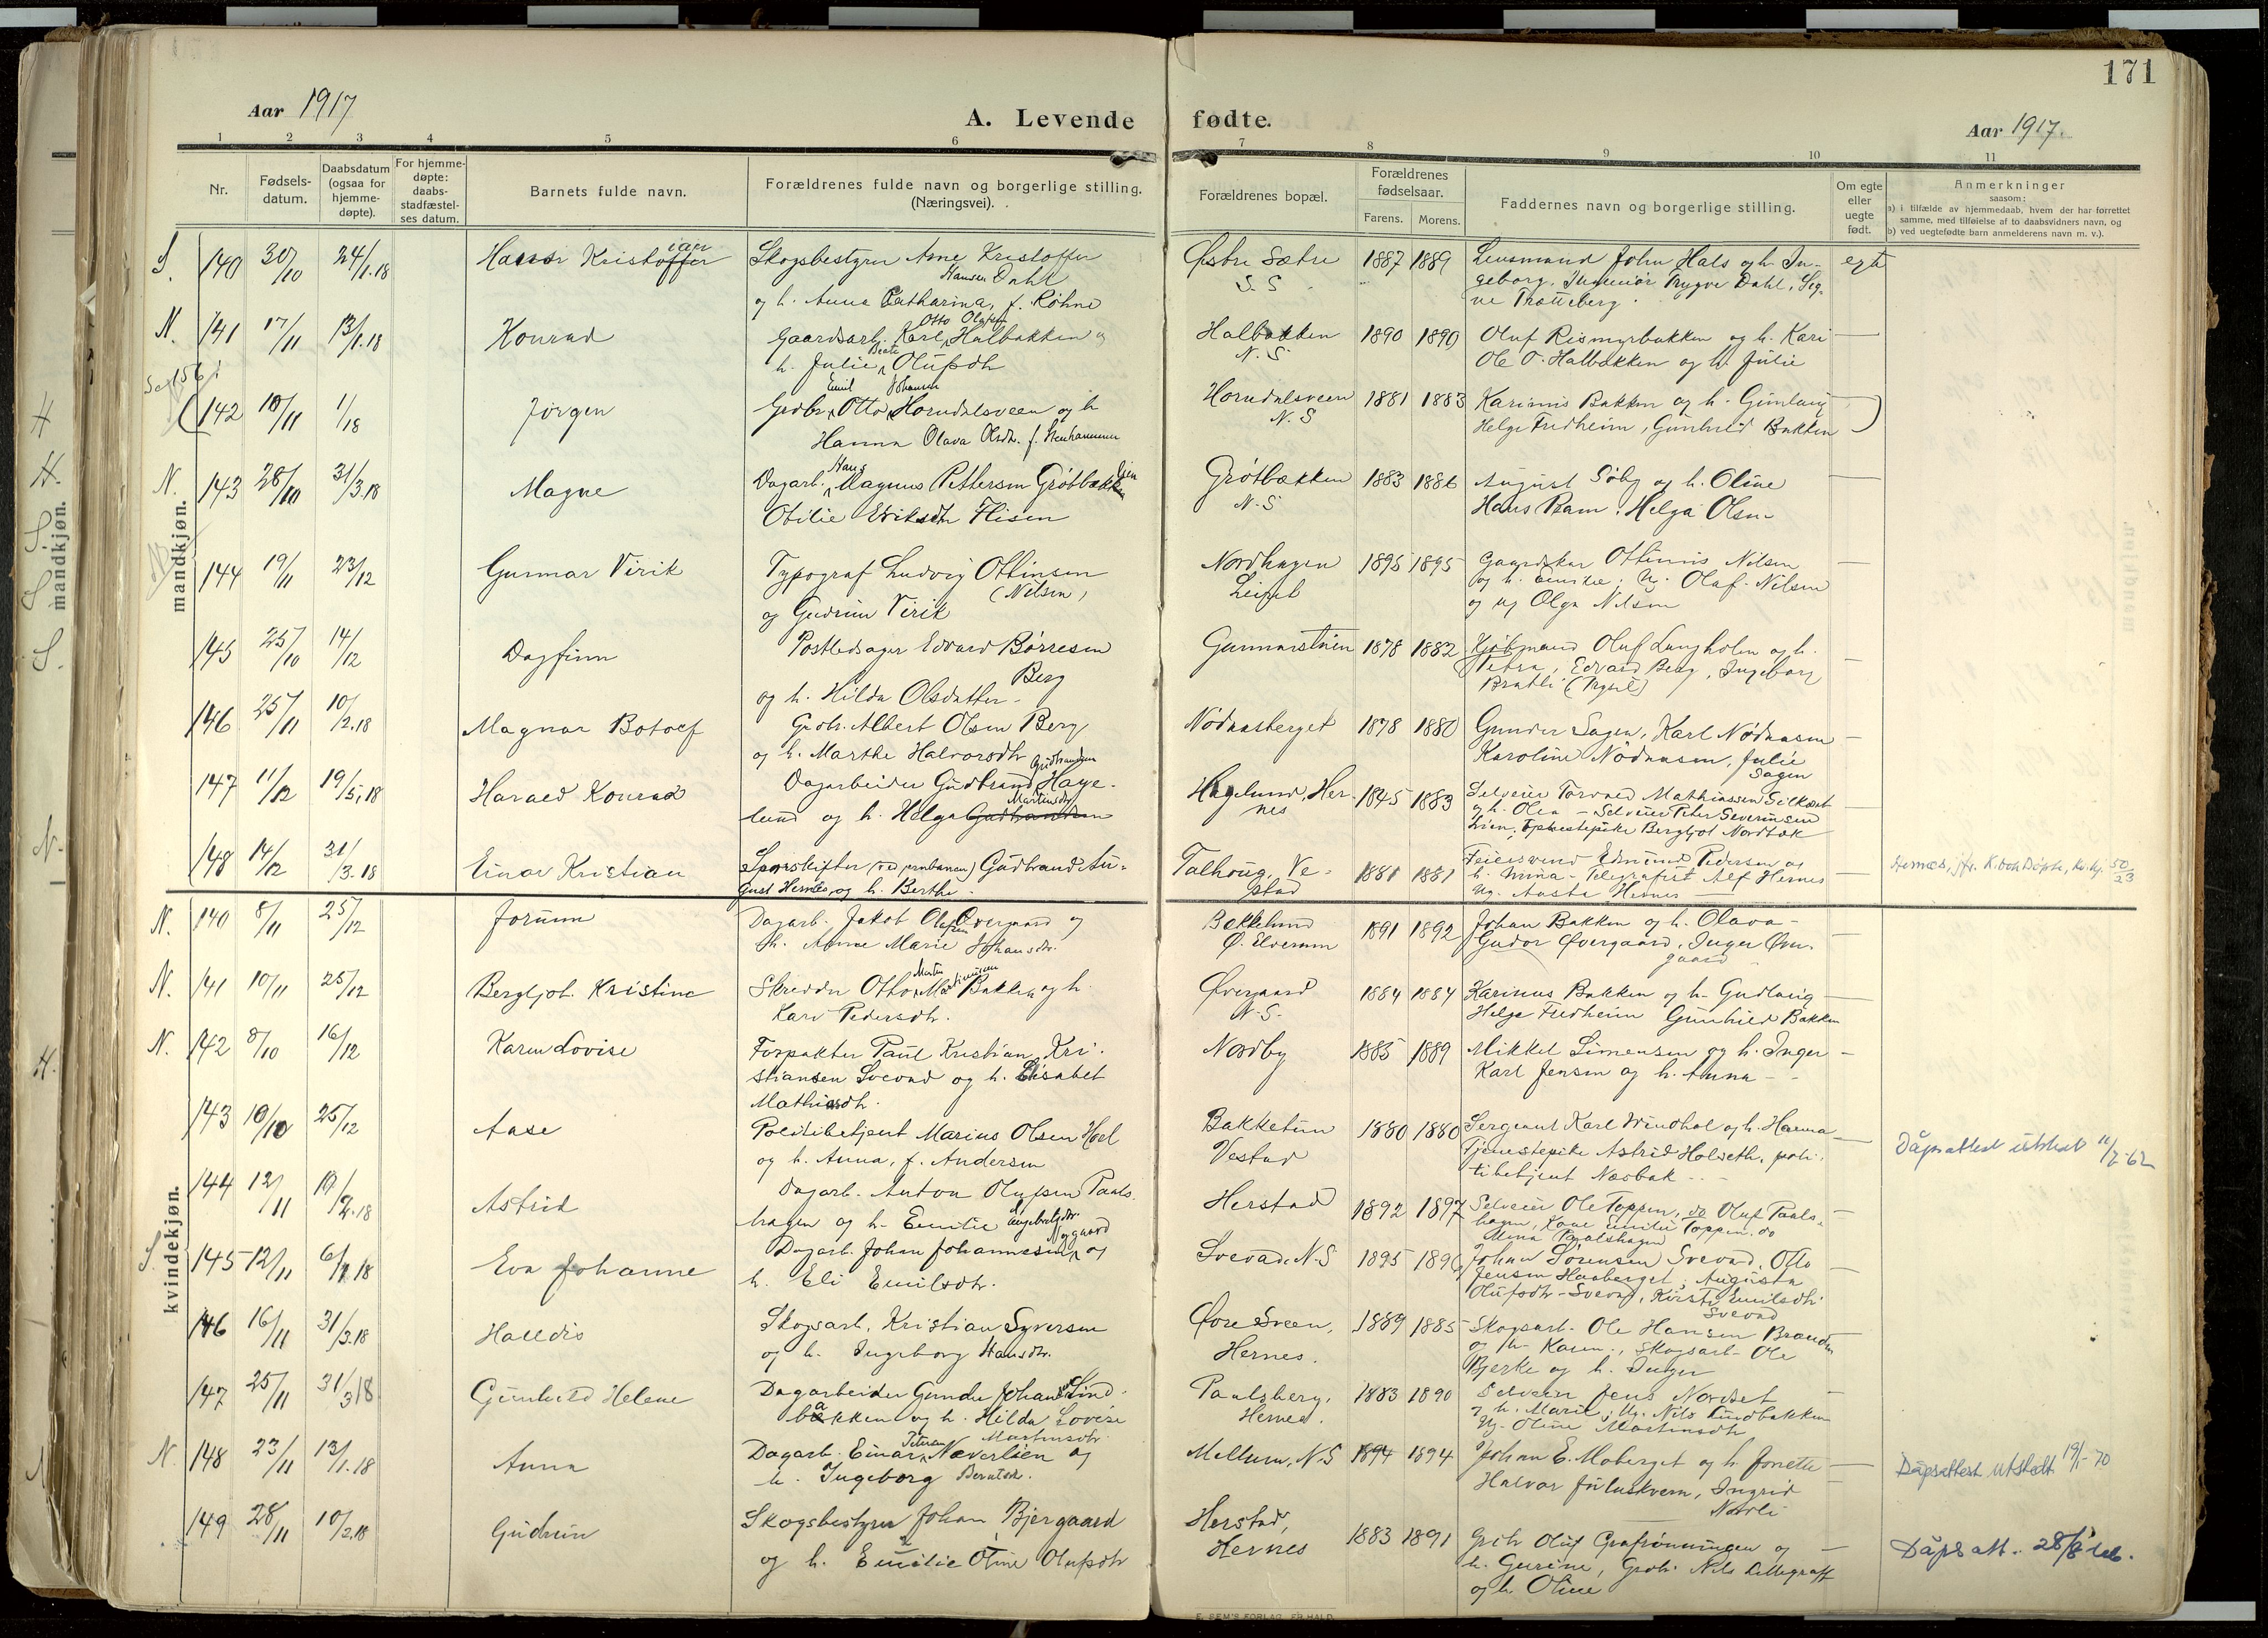 171
Aar 1917
A. Levende fødte.
Aar 1917.
1 2 3 4 5 6 7 8 9 10 11
Nr.
Fødsels-
datum.
Daabsdatum
(ogsaa for
hjemme-
døpte).
For hjemme-
døpte:
daabs-
stadfæstel-
ses datum.
Barnets fulde navn.
Forældrenes fulde navn og borgerlige stilling.
(Næringsvei).
Forældrenes bopæl.
Forældrenes
fødselsaar.
Farens. Morens.
Faddernes navn og borgerlige stilling.
Om egte
eller
uegte
født.
Anmerkninger
saasom:
a) i tilfælde av hjemmedaab, hvem der har forrettet
samme, med tilføielse af to daabsvidners navn, og
b) ved uegtefødte barn anmelderens navn m. v.).
mandkjøn.
S. 140 30/10 24/1.18 Hans Kristoffer Skogsbestyrer Arne Kristoffer Østre Sætre 1887 1889 Lensmand John Hals og h. In- egte
Hansen Dahl S. S geborg, Ingeniør Trygve Dahl, Sig-
og h. Anna Catharina, f. Røhne ne Trætteberg.
N. 141 17/11 13/1.18 Konrad Gaardsarb. Karl Otto Olufsen Halbakken og Halbakken 1890 1890 Oluf Rismyrbakken og h. Kari
h. Julie Beate Olufsdtr N. S. Ole O. Halbakken og h. Julie
142 10/11 1/18 Jørgen Grdbr. Otto Emil Johansen Horndalsveen og h Horndalsveen 1881 1883 Karinus Bakken og h. Gunlaug
Hanna Olava Olsdtr. f. N. S Helge Fredheim, Gunhild Bakken
N. 143 28/10 31/3.18 Magne Dagarb. Hans Magnus Pettersen Grøtbækken Grøtbækken 1883 1886 August Søby og h. Oline
Otilie Eriksdtr Flisen N. S Hans Ram. Helga Olsen
144 19/11 23/12 Gunnar Virik Typograf Ludvig Ottinsen Nordhagen 1895 1895 Gaardbr Ottinius Nilsen
(Nilsen) og h. Emilie. Ug. Olaf Nilsen
og Gudrun Virik og ug Olga Nilsen
145 25/10 14/12 Dagfinn Postledsager Edvard Børresen Gunnarstuen 1878 1882 Kjøbmand Oluf Langholen og h.
Berg Petra, Edvard Berg, Ingeborg
og h. Hilda Olsdatter. Bratli (Trysil)
146 25/11 10/2.18 Magnar Botolf Grdbr. Albert Olsen Berg Nødaasberget 1878 1880 Gunder Sagen, Karl Nødaasen
og h. Marthe Halvorsdtr Karoline Nødaasen, Julie
Sagen
147 11/12 19/5.18 Harald Konrad Dagarbeider Gudbrand Gudbrandsen Hage- Hagelund, Her- 1845 1883 Selveier Torvald Mathiassen
lund og h. Helga Martinsdtr nes og h. Olea - Selveier Peter Severinsen
Lien, Tjenestepike Bergljot Nordbæk
148 14/12 31/3.18 Einar Kristian Sporskifter (ved jernbanen) Gudbrand Au- Talhoug, Ve- 1881 1881 Feiersvend Edmund Pedersen og
gust Hernes og h. Berthe. stad h. Mina - Telegrafist Alf Hernes
Ug. Aasta Hernes
kvindekjøn.
N. 140 8/11 25/12 Jorunn Dagarb. Jakob Olufsen Øvergaard og Bakkelund 1891 1892 Johan Bakken og h. Olava -
h. Anne Marie Johansdtr. Ø. Elverum Gudor Øvergaard, Inger Øver-
gaard
N. 141 10/11 25/12 Bergljot Kristine Skredder Otto Martin Bakken og h. Øvergaard 1884 1884 Karinus Bakken og h. Gudlaug
Kari Pedersdtr. N. S. Helge Fredheim Gunhild Bakken
N. 142 8/10 16/12 Karen Lovise Forpakter Paul Kristian Kri- Nordby 1885 1889 Mikkel Simensen og h. Inger
stiansen Svevad og h. Elisabet Karl Jensen og h. Anna -
Mathiasdtr.
143 10/10 25/12 Aase Politibetjent Marius Olsen Hoel Bakketun 1880 1880 Sergeant Karl Windhol og h. Hanna Dåpsattest utstedt 11/7-62
og h. Anna, f. Andersen Vestad Tjenestepike Astrid Holseth, poli-
tibetjent Næsbak
144 12/11 Astrid Dagarb. Anton Olufsen Pauls- Herstad 1892 1897 Selveier Ole Toppen, do Oluf Pauls-
hagen og h. Emilie Engebretsdtr. hagen, Kone Emilie Toppen. do
Mina Paulshagen
S. 145 12/11 6/1.18 Eva Johanne Dagarb. Johan Johannessen Nygaard og Svevad, N.S 1895 1896 Johan Sørensen Svevad, Otto
h. Eli Emilsdtr. Jensen Haaberget, Augusta
Olufsdtr Svevad, Kirsti Emilsdtr
Svevad
146 16/11 31/3.18 Halldis Skogsarb. Kristian Syversen Øvre Sveen, 1889 1885 Skogsarb. Ole Hansen Branden
og h. Ingeborg Hansdtr. Hernes. og h. Karen, Skogsarb. Ole
Bjerke og h. Inger
147 25/11 31/3 18 Gunhild Helene Dagarbeider Gunder Johansen Lind- Paulsberg, 1883 1890 Selveier Jens Nordset
bakken og h. Hilda Lovise Hernes. og h. Marie, Ug. Nils Lindbakken
Martinsdtr. Ug. Oline Martinsdtr
N. 148 23/11 13/1.18 Anna Dagarb. Einar Petersen Næverlien og Mellum, N.S 1894 1894 Johan E. Moberget og h. Jonette Dåpsattest utstedt 19/1-70
h. Ingeborg Berntsdtr. Halvor Juluskvern, Ingrid
Nordli
149 28/11 10/2.18 Gudrun Skogsbestyrer Johan Bjergaard Herstad, 1883 1891 Grdbr Oluf Grafrønningen og Dåpsatt. 28/8
og h. Emilie Otine Olufsdtr Hernes h. Gurine, Grdbr. Nils Lillegraff
og h. Oline
E. SEM'S FORLAG, FR.HALD.